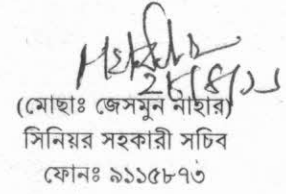 ২৮/৪/১১
(মোছাঃ জেসমুন নাহার)
সিনিয়র সহকারী সচিব
ফোনঃ ৯১১৫৮৭৩